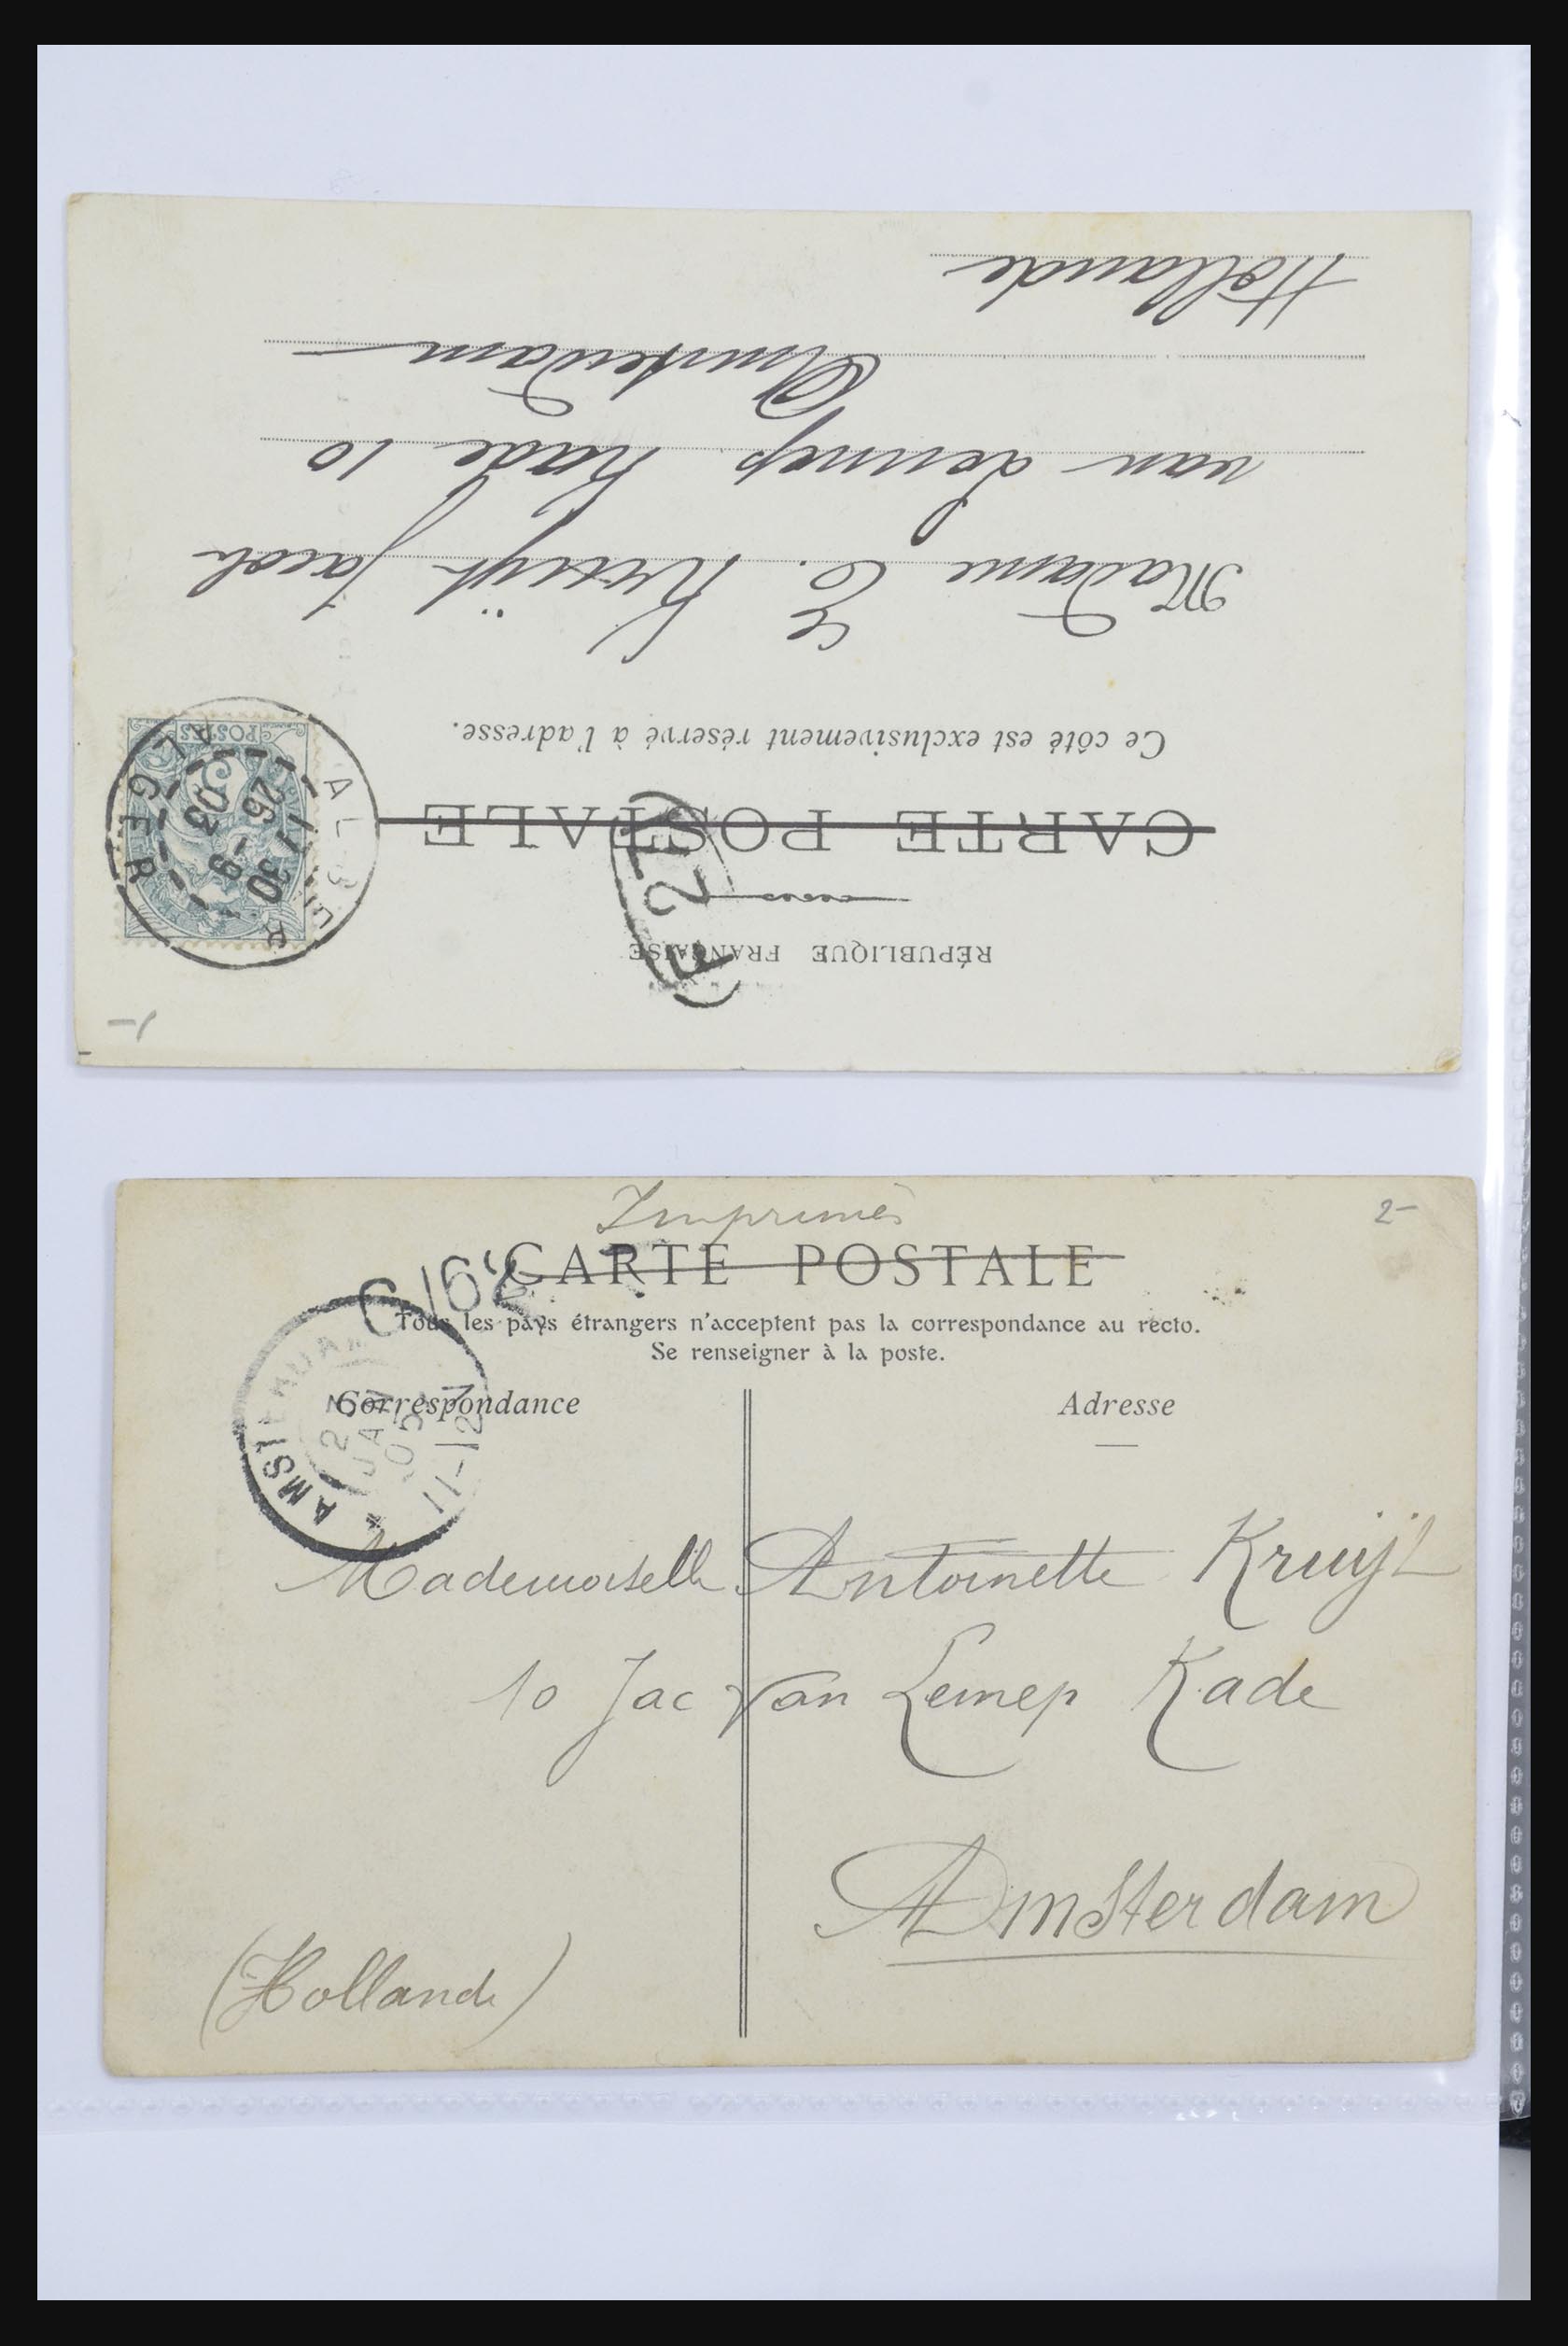 RÉPUBLIQUE FRANÇAISE
CARTE POSTALE
Ce côté est exclusivement réservé à l'adresse.
Madame E. Kruijt Jacob
van Lennep Kade 10
Amsterdam
Hollande
ALGER ALGER
11 30
26 - 9
03
POSTES
1-
Imprimés
2-
CARTE POSTALE
Tous les pays étrangers n'acceptent pas la correspondance au recto.
Se renseigner à la poste.
Correspondance
Adresse
AMSTERDAM
2 JAN 05
11-12
Mademoiselle Antoinette Kruijt
10 Jac Van Lennep Kade
Amsterdam
(Hollande)